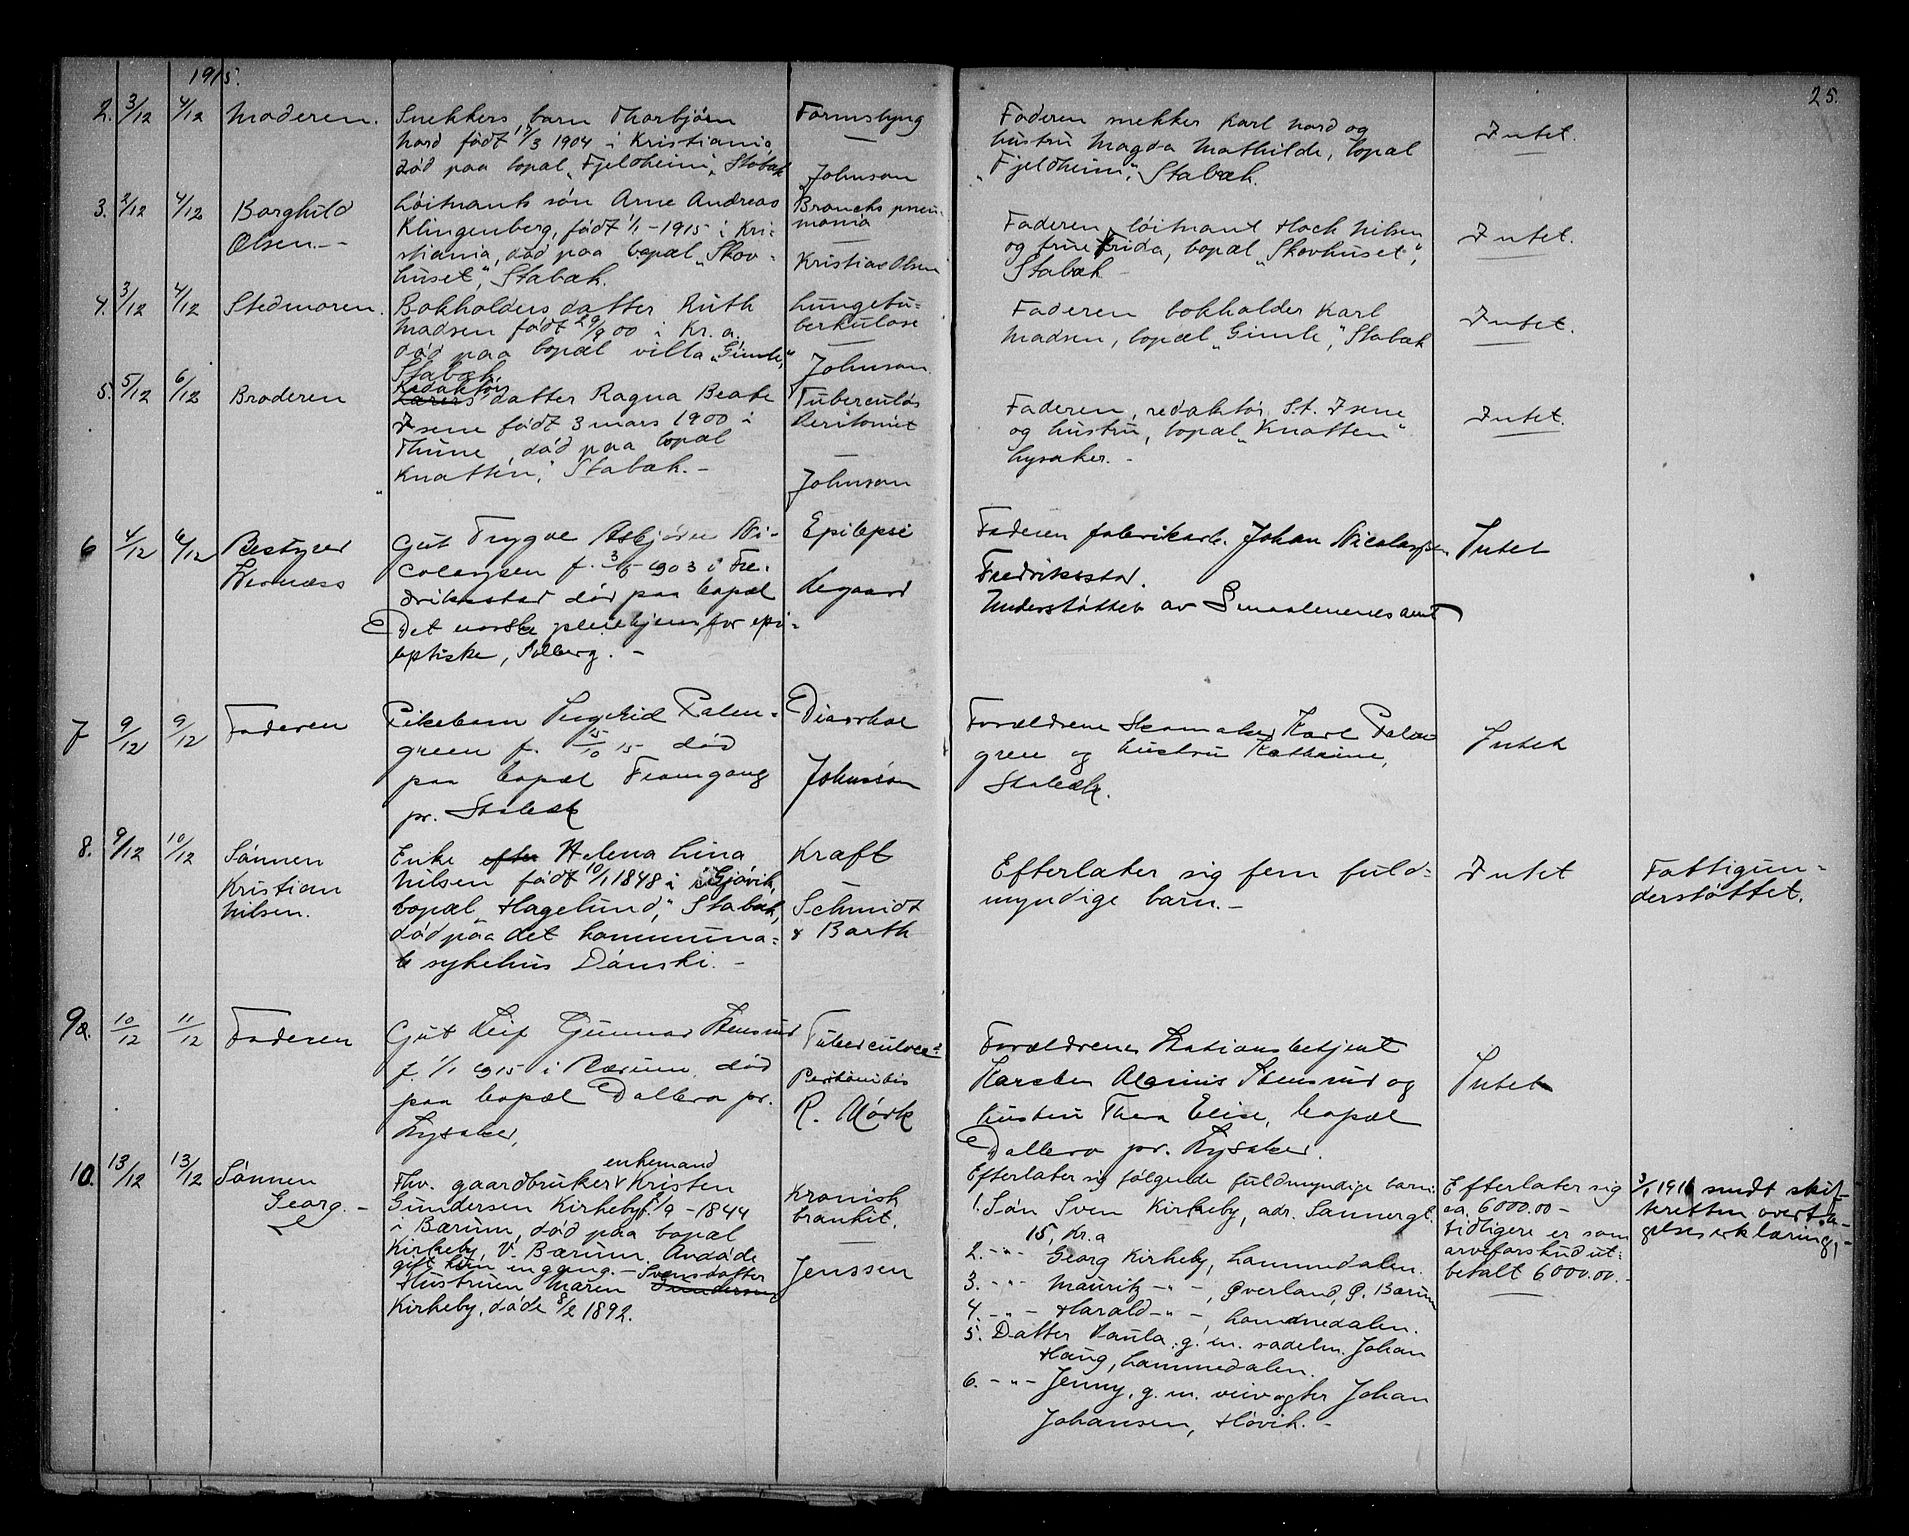 1915.
25.
2. 3/12 4/12 Moderen.
Snekkers barn Thorbjørn
Nord født 17/3 1904 i Kristiania,
død paa bopæl "Fjeldheim", Stabæk
Tarmslyng
Johnson
Faderen snekker Karl Nord og
hustru Magda Mathilde, bopæl
"Fjeldheim", Stabæk.
Intet.
3. 2/12 4/12 Borghild
Olsen.
Løitnants søn Arne Andreas
Klingenberg, født 1/1 - 1915 i Kri-
stiania, død paa bopæl "Skov-
huset", Stabæk.
Bronchopneu-
monia
Kristian Olsen
Faderen, løitnant Hoch Nilsen
og frue Frida, bopæl "Skovhuset",
Stabæk
Intet.
4. 3/12 4/12 Stedmoren.
Bokholders datter Ruth
Madsen født 29/9 00 i Kr.a.
død paa bopæl villa "Gimle",
Stabæk.
Lungetu-
berkulose
Johnson.
Faderen bokholder Karl
Madsen, bopæl "Gimle", Stabæk
Intet.
5. 5/12 6/12 Broderen
Redaktørs
Lærers datter Ragna Beate
Isene født 3 mars 1900 i
Thune, død paa bopæl
"Knatten", Stabæk. -
Tuberculøs
Peritonit
Johnson
Faderen, redaktør S.t. Isene
og hustru, bopæl "Knatten"
Lysaker. -
Intet.
6 4/12 6/12 Bestyrer
Wernæss
Gut Trygve Asbjørn Ni-
colaysen f. 3/5 1903 i Fre-
drikstad død paa bopæl
Det norske pleiehjem for epi-
leptiske, Solberg. -
Epilepsi
Aegaard
Faderen fabrikarb. Johan Nicolaysen
Fredriksstad.
Understøttet av Smaalenenes amt
Intet
7 9/12 9/12 Faderen
Pikebarn Ingrid Palm-
green f. 15 død
paa bopæl Framgang
pr. Stabæk
Diarrhoe
Johnson
Forældrene Skomaker Karl Palm
green og hustru Kathrine,
Stabæk.
Intet
8. 9/12 10/12 Sønnen
Kristian
Nilsen.
Enke efter Helena Lina
Nilsen født 10/1 1848 i Gjøvik,
bopæl "Hagelund", Stabæk,
død paa det kommuna-
le sykehus Dønski. -
Kræft
Schmidt
& Barth
Efterlater sig fem fuld-
myndige barn. -
Intet
Fattigun-
derstøttet.
9a. 10/12 11/12 Faderen
Gut Leif Gunnar Stensrud
f. 1/1 1915 i Bærum, død
paa bopæl Dallero pr.
Lysaker,
Tuberculose
Peritonitis
R. Mörk
Forældrene Stationsbetjent
Karsten Stensrud og
hustru Thea Elise, bopæl
Dallero pr. Lysaker.
Intet
10. 13/12 13/12 Sønnen
Georg. -
enkemand
Fhv. gaardbruker Kristen
Gundersen Kirkeby f. 1/9 - 1844
i Bærum, død paa bopæl
Kirkeby, V. Bærum. Avdøde
gift kun en gang. - Svensdatter
Hustruen Maren Gundersen
Kirkeby, døde 8/2 1892.
Kronisk
bronkit.
Jenssen
Efterlater sig følgende fuldmyndige barn:
1. Søn Sven Kirkeby, adr. Sannergt.
15, Kr.a
2. -"- Georg Kirkeby, Lommedalen.
3. -"- Mauritz -"-, Øverland, Ø. Bærum
4. -"- Harald -"-, Lommedalen.
5. Datter Paula g. m. sadelm. Johan
Haug, Lommedalen.
6. -"- Jenny, g. m. veivogter Johan
Johansen, Høvik. -
Efterlater sig
ca. 6000.00 -
tidligere er som
arveforskud ut-
betalt 6000.00. -
3/1 1916 sendt skif-
teretten overta-
gelseserklæring. -